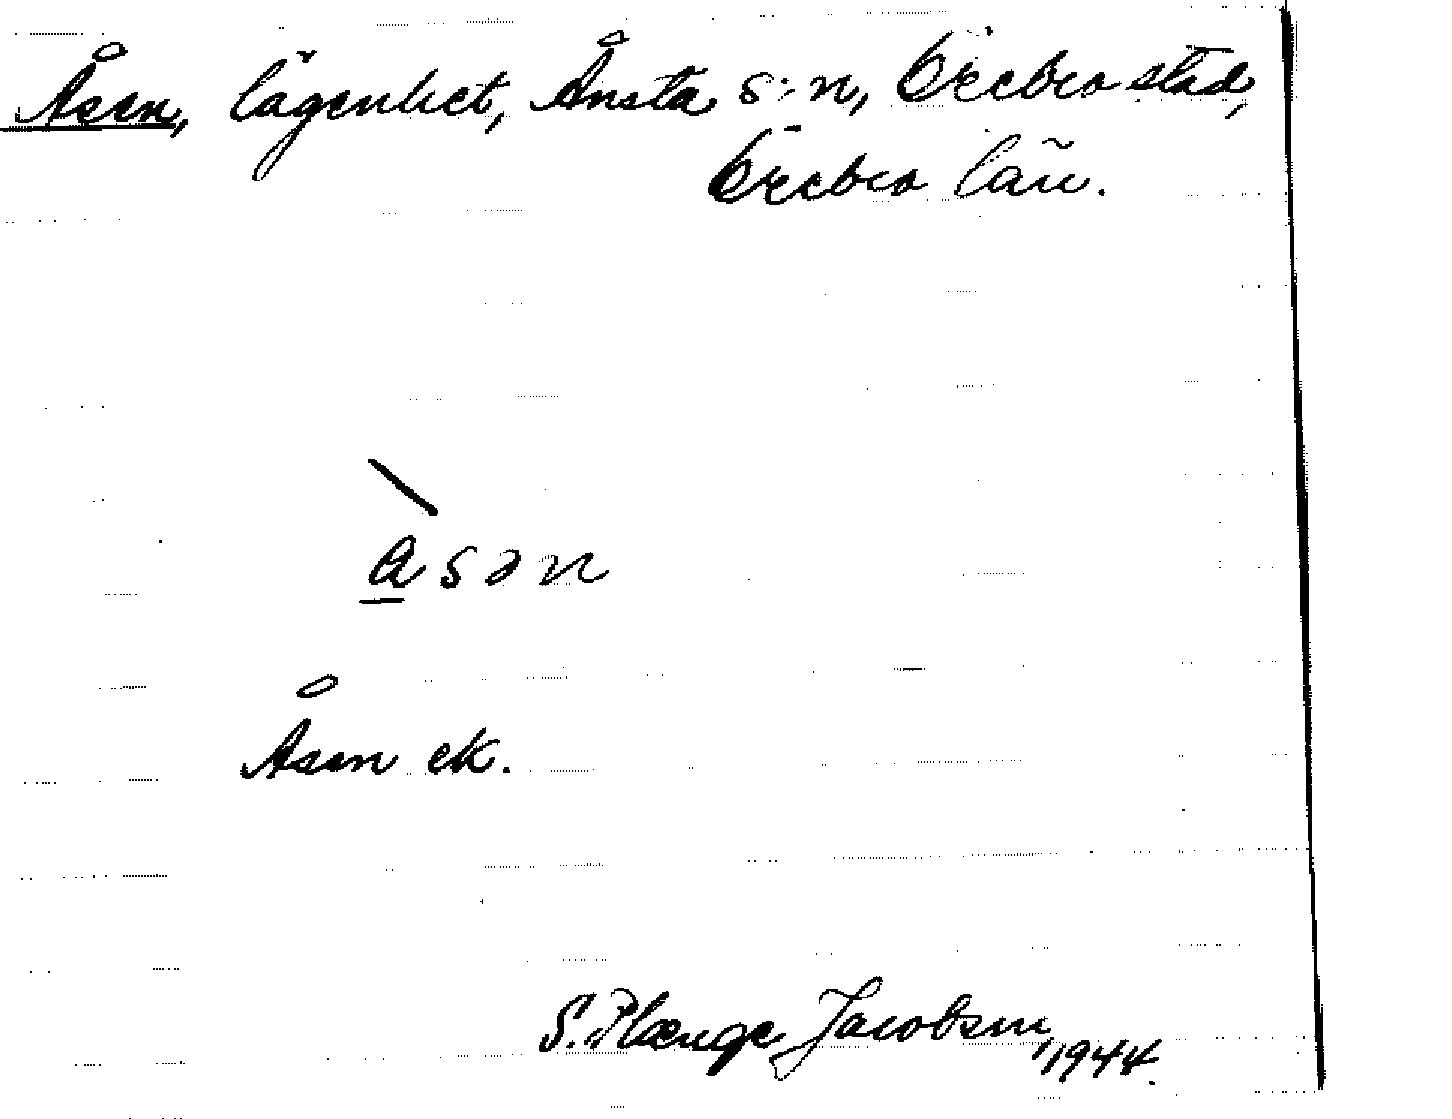 Åsen, lägenhet, Ånsta s:n, Örebro stad,
Örebro län.
asən
Åsen ek.
S. Plænge Jacobson, 1944.